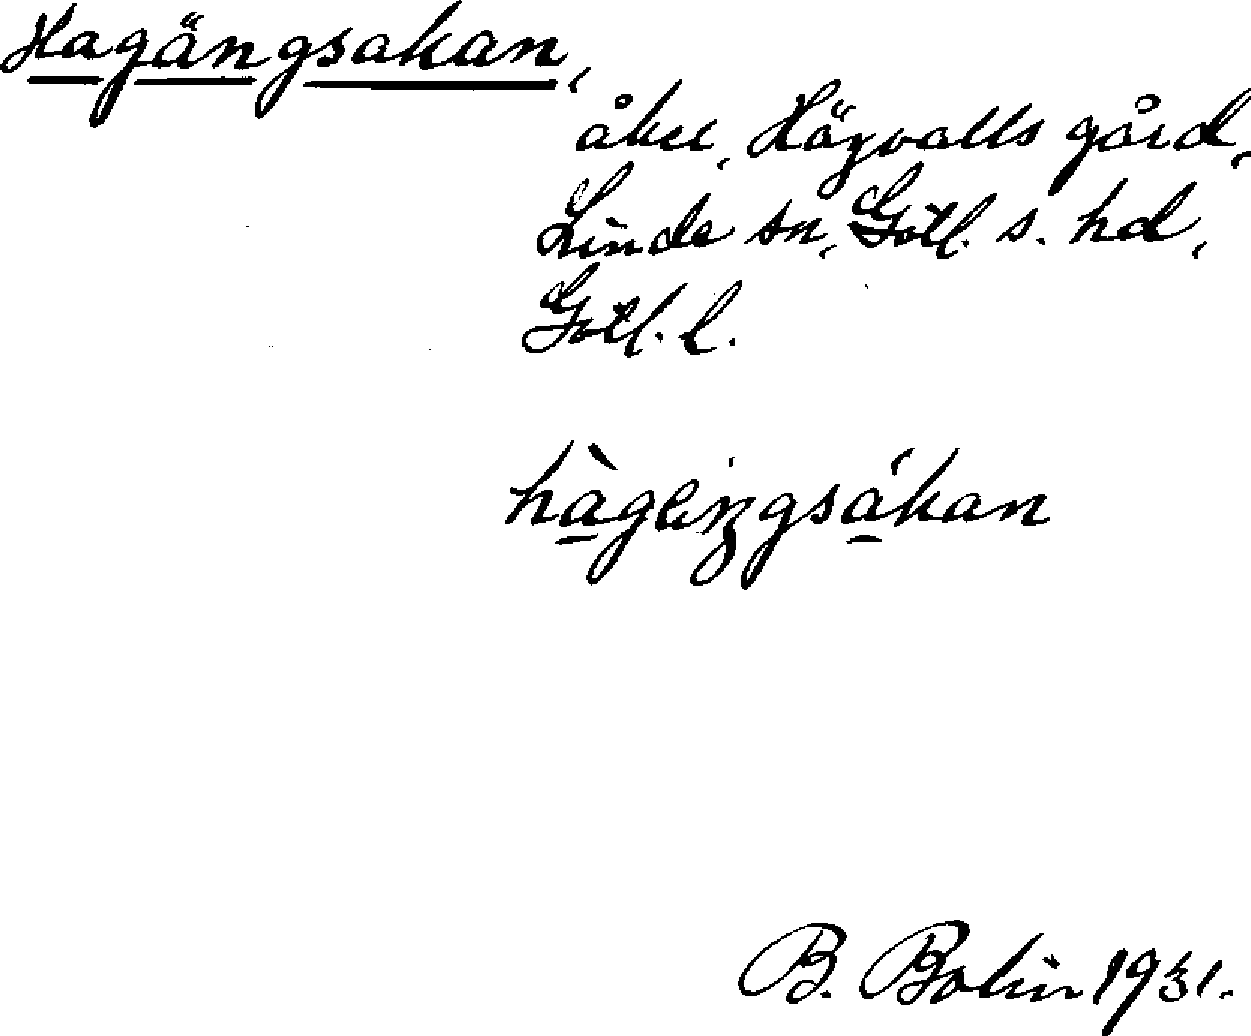 Hagängsakan,
åker, Hägvalls gård,
Linde sn, Gotl. s. hd,
Gotl. l.
hàgeŋgsákan
B. Bolin 1931.